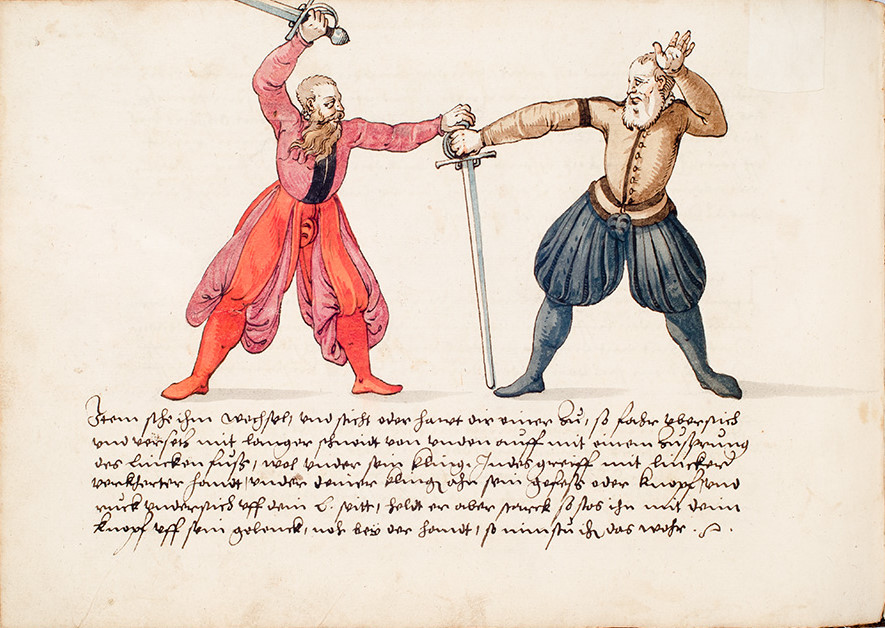 Item stehe ihm wechsel, und sticht oder hawt dir einer zu, so fahr ubersich
und versetz mit langer schneidt von unden auff mit einem zusprung
des lincken fuß, wol under sein kling, Indes greiff mit lincker
verkherter handt, under deiner kling, ahn sein gefeß oder knopf, und
ruck undersich uff dein l. seitt, heldt er aber starck so stos ihn mit deim
knopf uff sein gelenck, nah bey der handt, so nimstu ihm das wehr.